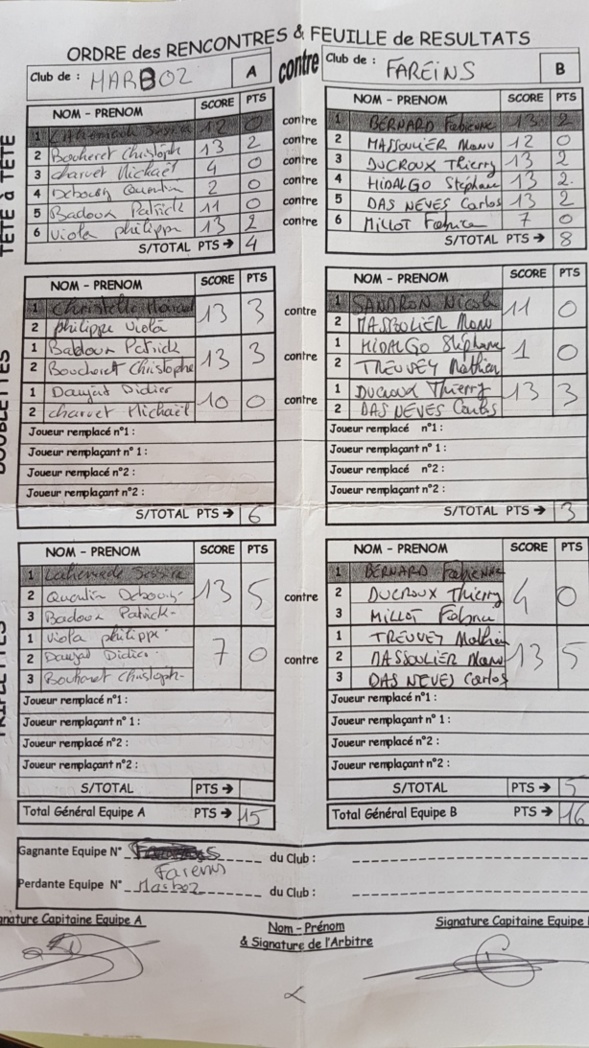 ORDRE des RENCONTRES & FEUILLE de RESULTATS
Club de : MARBOZ A contre Club de : FAREINS B
TÊTE à TÊTE
NOM - PRENOM SCORE PTS contre NOM - PRENOM SCORE PTS
1 12 0 contre 1 BERNARD Fabienne 13 2
2 Bocheret Christoph 13 2 contre 2 MASSOULIER Manu 12 0
3 charvet Michaël 4 0 contre 3 DUCROUX Thierry 13 2
4 Debourg Quentin 2 0 contre 4 HIDALGO Stéphane 13 2
5 Badoux Patrick 11 0 contre 5 DAS NEVES Carlos 13 2
6 Viola philippe 13 2 contre 6 MILLOT Fabrice 7 0
S/TOTAL PTS → 4 S/TOTAL PTS → 8
DOUBLETTES
NOM - PRENOM SCORE PTS NOM - PRENOM SCORE PTS
1 Christelle 13 3 contre 1 SANDRON Nicola 11 0
2 philippe Viola 2 MASSOULIER Manu
1 Badoux Patrick 13 3 contre 1 HIDALGO Stéphane 1 0
2 Boucheret Christophe 2 TREUVEY Mathieu
1 Daujat Didier 10 0 contre 1 Ducroux Thierry 13 3
2 charvet Michaël 2 DAS NEVES Carlos
Joueur remplacé n°1 : Joueur remplacé n°1 :
Joueur remplaçant n° 1 : Joueur remplaçant n° 1 :
Joueur remplacé n°2 : Joueur remplacé n°2 :
Joueur remplaçant n°2 : Joueur remplaçant n°2 :
S/TOTAL PTS → 6 S/TOTAL PTS → 3
NOM - PRENOM SCORE PTS NOM - PRENOM SCORE PTS
1 13 5 contre 1 BERNARD Fabienne 4 0
2 Quentin Debourg 2 DUCROUX Thierry
3 Badoux Patrick- 3 MILLOT Fabrice
1 Viola philippe 7 0 contre 1 TREUVEY Mathieu 13 5
2 Daujat Didier 2 MASSOULIER Manu
3 Boucheret Christoph- 3 DAS NEVES Carlos
Joueur remplacé n°1 : Joueur remplacé n°1 :
Joueur remplaçant n° 1 : Joueur remplaçant n° 1 :
Joueur remplacé n°2 : Joueur remplacé n°2 :
Joueur remplaçant n°2 : Joueur remplaçant n°2 :
S/TOTAL PTS → S/TOTAL PTS → 5
Total Général Equipe A PTS → 15 Total Général Equipe B PTS → 16
Gagnante Equipe N° du Club :
Fareins
Perdante Equipe N° Marboz du Club :
nature Capitaine Equipe A Nom - Prénom Signature Capitaine Equipe
& Signature de l'Arbitre